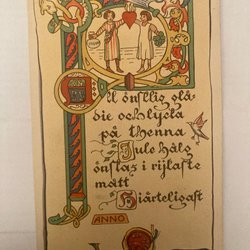 All önsklig glä
die och lycka
på thenna
Jule hälg
önskas i rijkaste
mått
Hiärteligast
ANNO